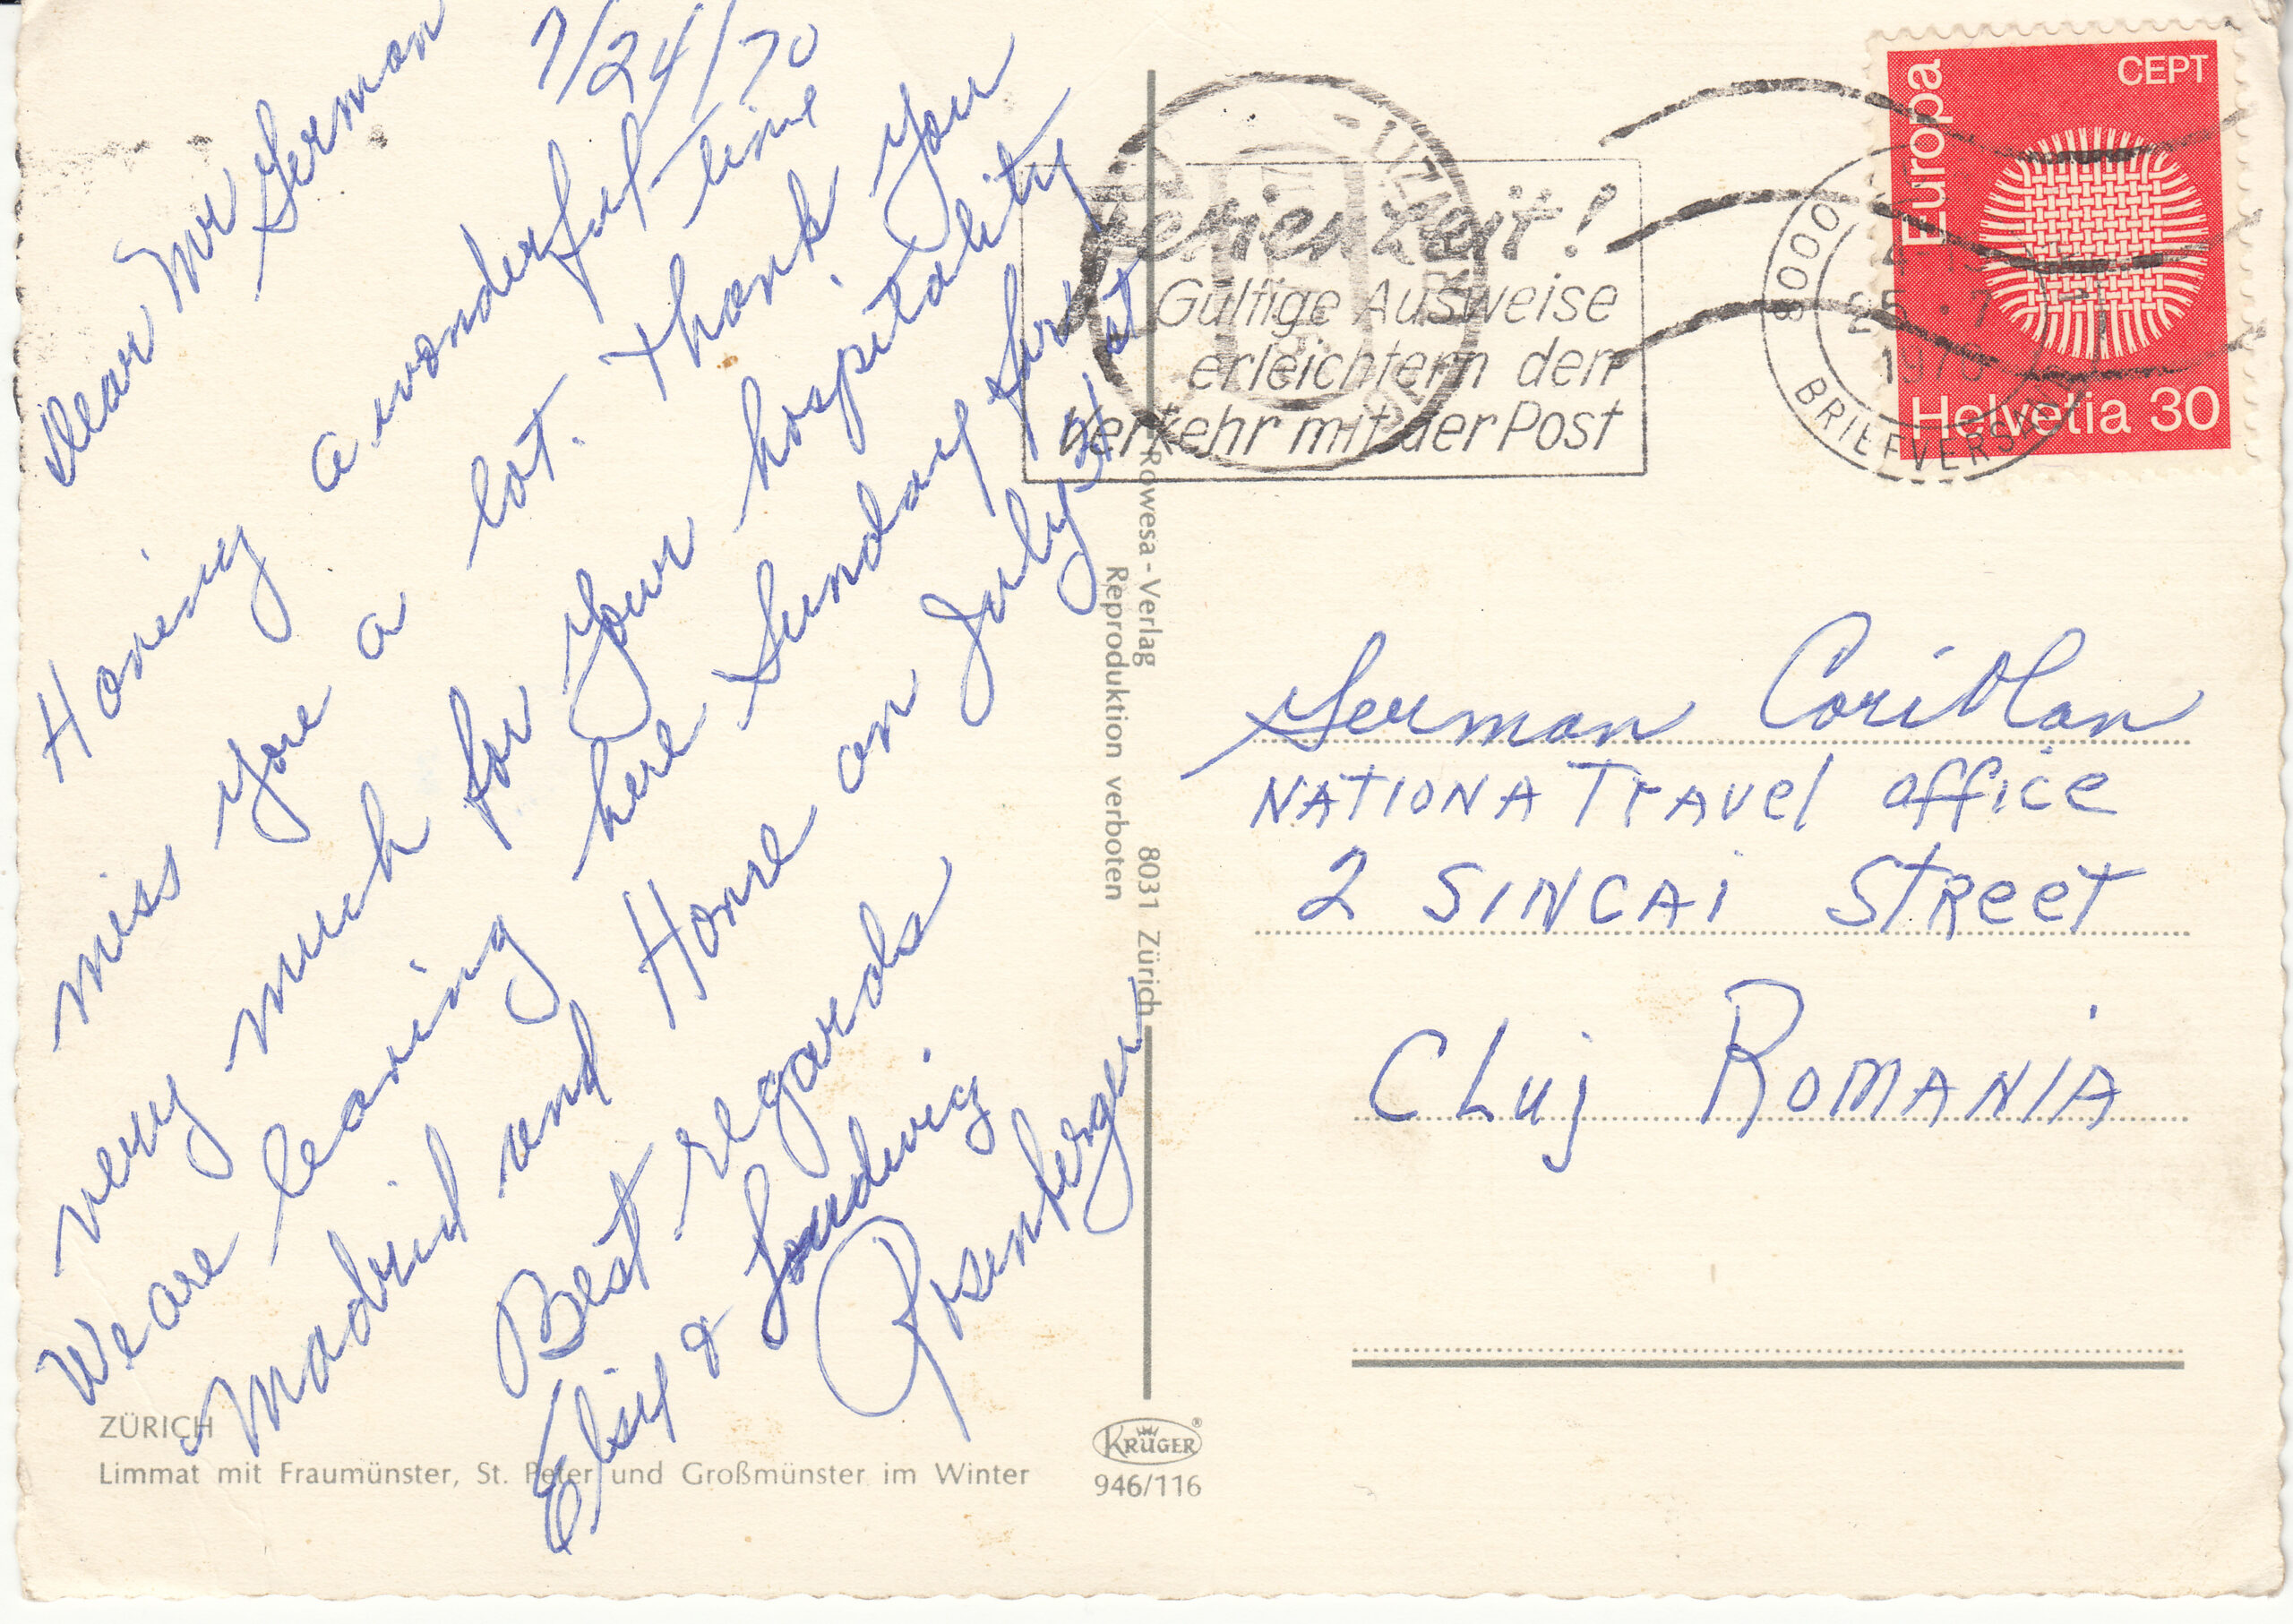 7/24/70
Dear Mr German
Having a wonderful time
miss you a lot. Thank you
very much for your hospitality
We are leaving here Sunday for
Madrid and Home on July 31st
Best regards
Elsie & Loudwig
Rosenberger
ZÜRICH
Limmat mit Fraumünster, St. Peter und Großmünster im Winter
Rowesa - Verlag 8031 Zürich
Reproduktion verboten
KRÜGER
946/116
Ferienzeit!
Gültige Ausweise
erleichtern den
Verkehr mit der Post
8000
25.-7
1970
BRIEFVERSAND
Europa
CEPT
Helvetia 30
German
NATIONA TrAVel office
2 SINCAI STReeT
CLuj ROMANIA